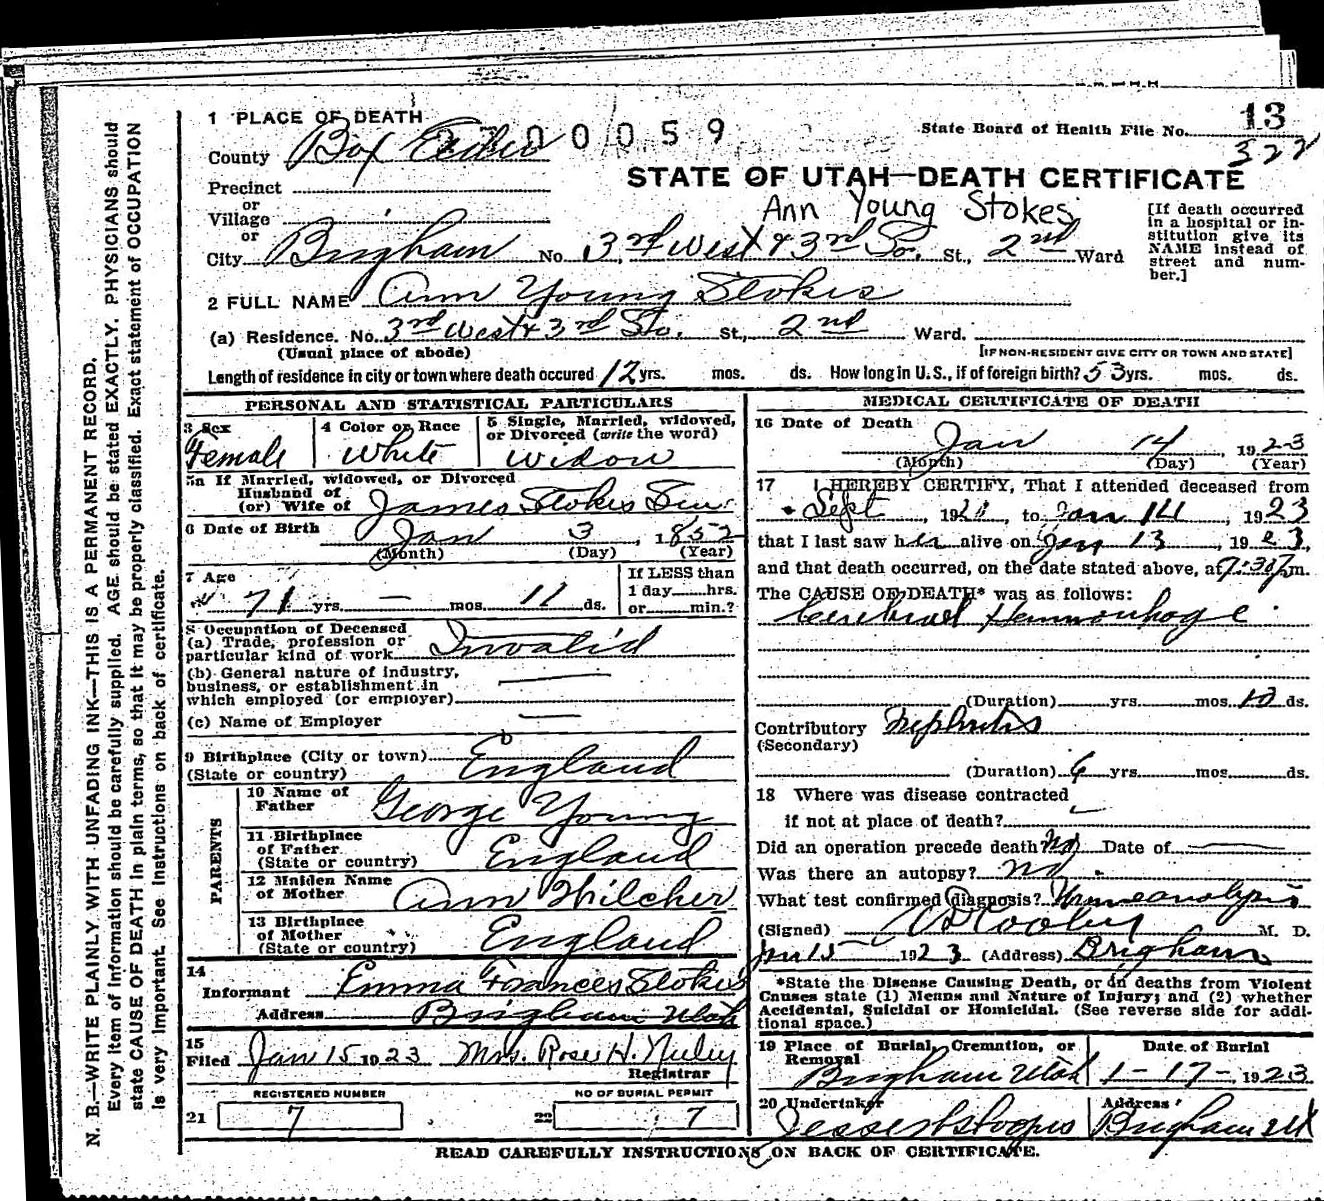 1 PLACE OF DEATH
00059
State Board of Health File No. 13
322
County Box Elder
STATE OF UTAH—DEATH CERTIFICATE
Precinct
or
Village
or
Ann Young Stokes
City Brigham No 3rd West & 3rd So. St., 2nd Ward
[If death occurred in a hospital or institution give its NAME instead of street and number.]
2 FULL NAME Ann Young Stokes
(a) Residence. No. 3rd West & 3rd So. St., 2nd Ward.
(Usual place of abode) [IF NON-RESIDENT GIVE CITY OR TOWN AND STATE]
Length of residence in city or town where death occured 12 yrs. mos. ds. How long in U.S., if of foreign birth? 53 yrs. mos. ds.
PERSONAL AND STATISTICAL PARTICULARS
3 Sex
Female
4 Color or Race
White
5 Single, Married, widowed, or Divorced (write the word)
Widow
5a If Married, widowed, or Divorced
Husband of
(or) Wife of James Stokes Sen
6 Date of Birth Jan 3, 1852
(Month) (Day) (Year)
7 Age
71 yrs. — mos. 11 ds.
If LESS than
1 day hrs.
or min.?
8 Occupation of Deceased
(a) Trade, profession or
particular kind of work Invalid
(b) General nature of industry,
business, or establishment in
which employed (or employer)
(c) Name of Employer
9 Birthplace (City or town)
(State or country) England
PARENTS
10 Name of
Father George Young
11 Birthplace
of Father
(State or country) England
12 Maiden Name
of Mother Ann Hilcher
13 Birthplace
of Mother
(State or country) England
14
Informant Emma Frances Stokes
Address Brigham Utah
15
Filed Jan 15 1923 Mrs. Rose H. Neeley
Registrar
REGISTERED NUMBER
21 7
NO OF BURIAL PERMIT
22 7
MEDICAL CERTIFICATE OF DEATH
16 Date of Death
Jan 14, 1923
(Month) (Day) (Year)
17 I HEREBY CERTIFY, That I attended deceased from
Sept, 192 , to Jan 14, 1923
that I last saw her alive on Jan 13, 1923,
and that death occurred, on the date stated above, at 7:30 m.
The CAUSE OF DEATH* was as follows:
Cerebral Hemorrhage
(Duration) yrs. mos. 10 ds.
Contributory Nephritis
(Secondary)
(Duration) 6 yrs. mos. ds.
18 Where was disease contracted
if not at place of death?
Did an operation precede death No Date of
Was there an autopsy? No.
What test confirmed diagnosis? Urineanalysis
(Signed) Cooley M. D.
Jan 15 1923 (Address) Brigham
*State the Disease Causing Death, or in deaths from Violent
Causes state (1) Means and Nature of Injury; and (2) whether
Accidental, Suicidal or Homicidal. (See reverse side for additional space.)
19 Place of Burial, Cremation, or
Removal
Brigham Utah
Date of Burial
1-17-, 1923
20 Undertaker
Address
Brigham Ut
READ CAREFULLY INSTRUCTIONS ON BACK OF CERTIFICATE.
N. B.—WRITE PLAINLY WITH UNFADING INK—THIS IS A PERMANENT RECORD.
Every item of information should be carefully supplied. AGE should be stated EXACTLY. PHYSICIANS should
state CAUSE OF DEATH in plain terms, so that it may be properly classified. Exact statement of OCCUPATION
is very important. See instructions on back of certificate.